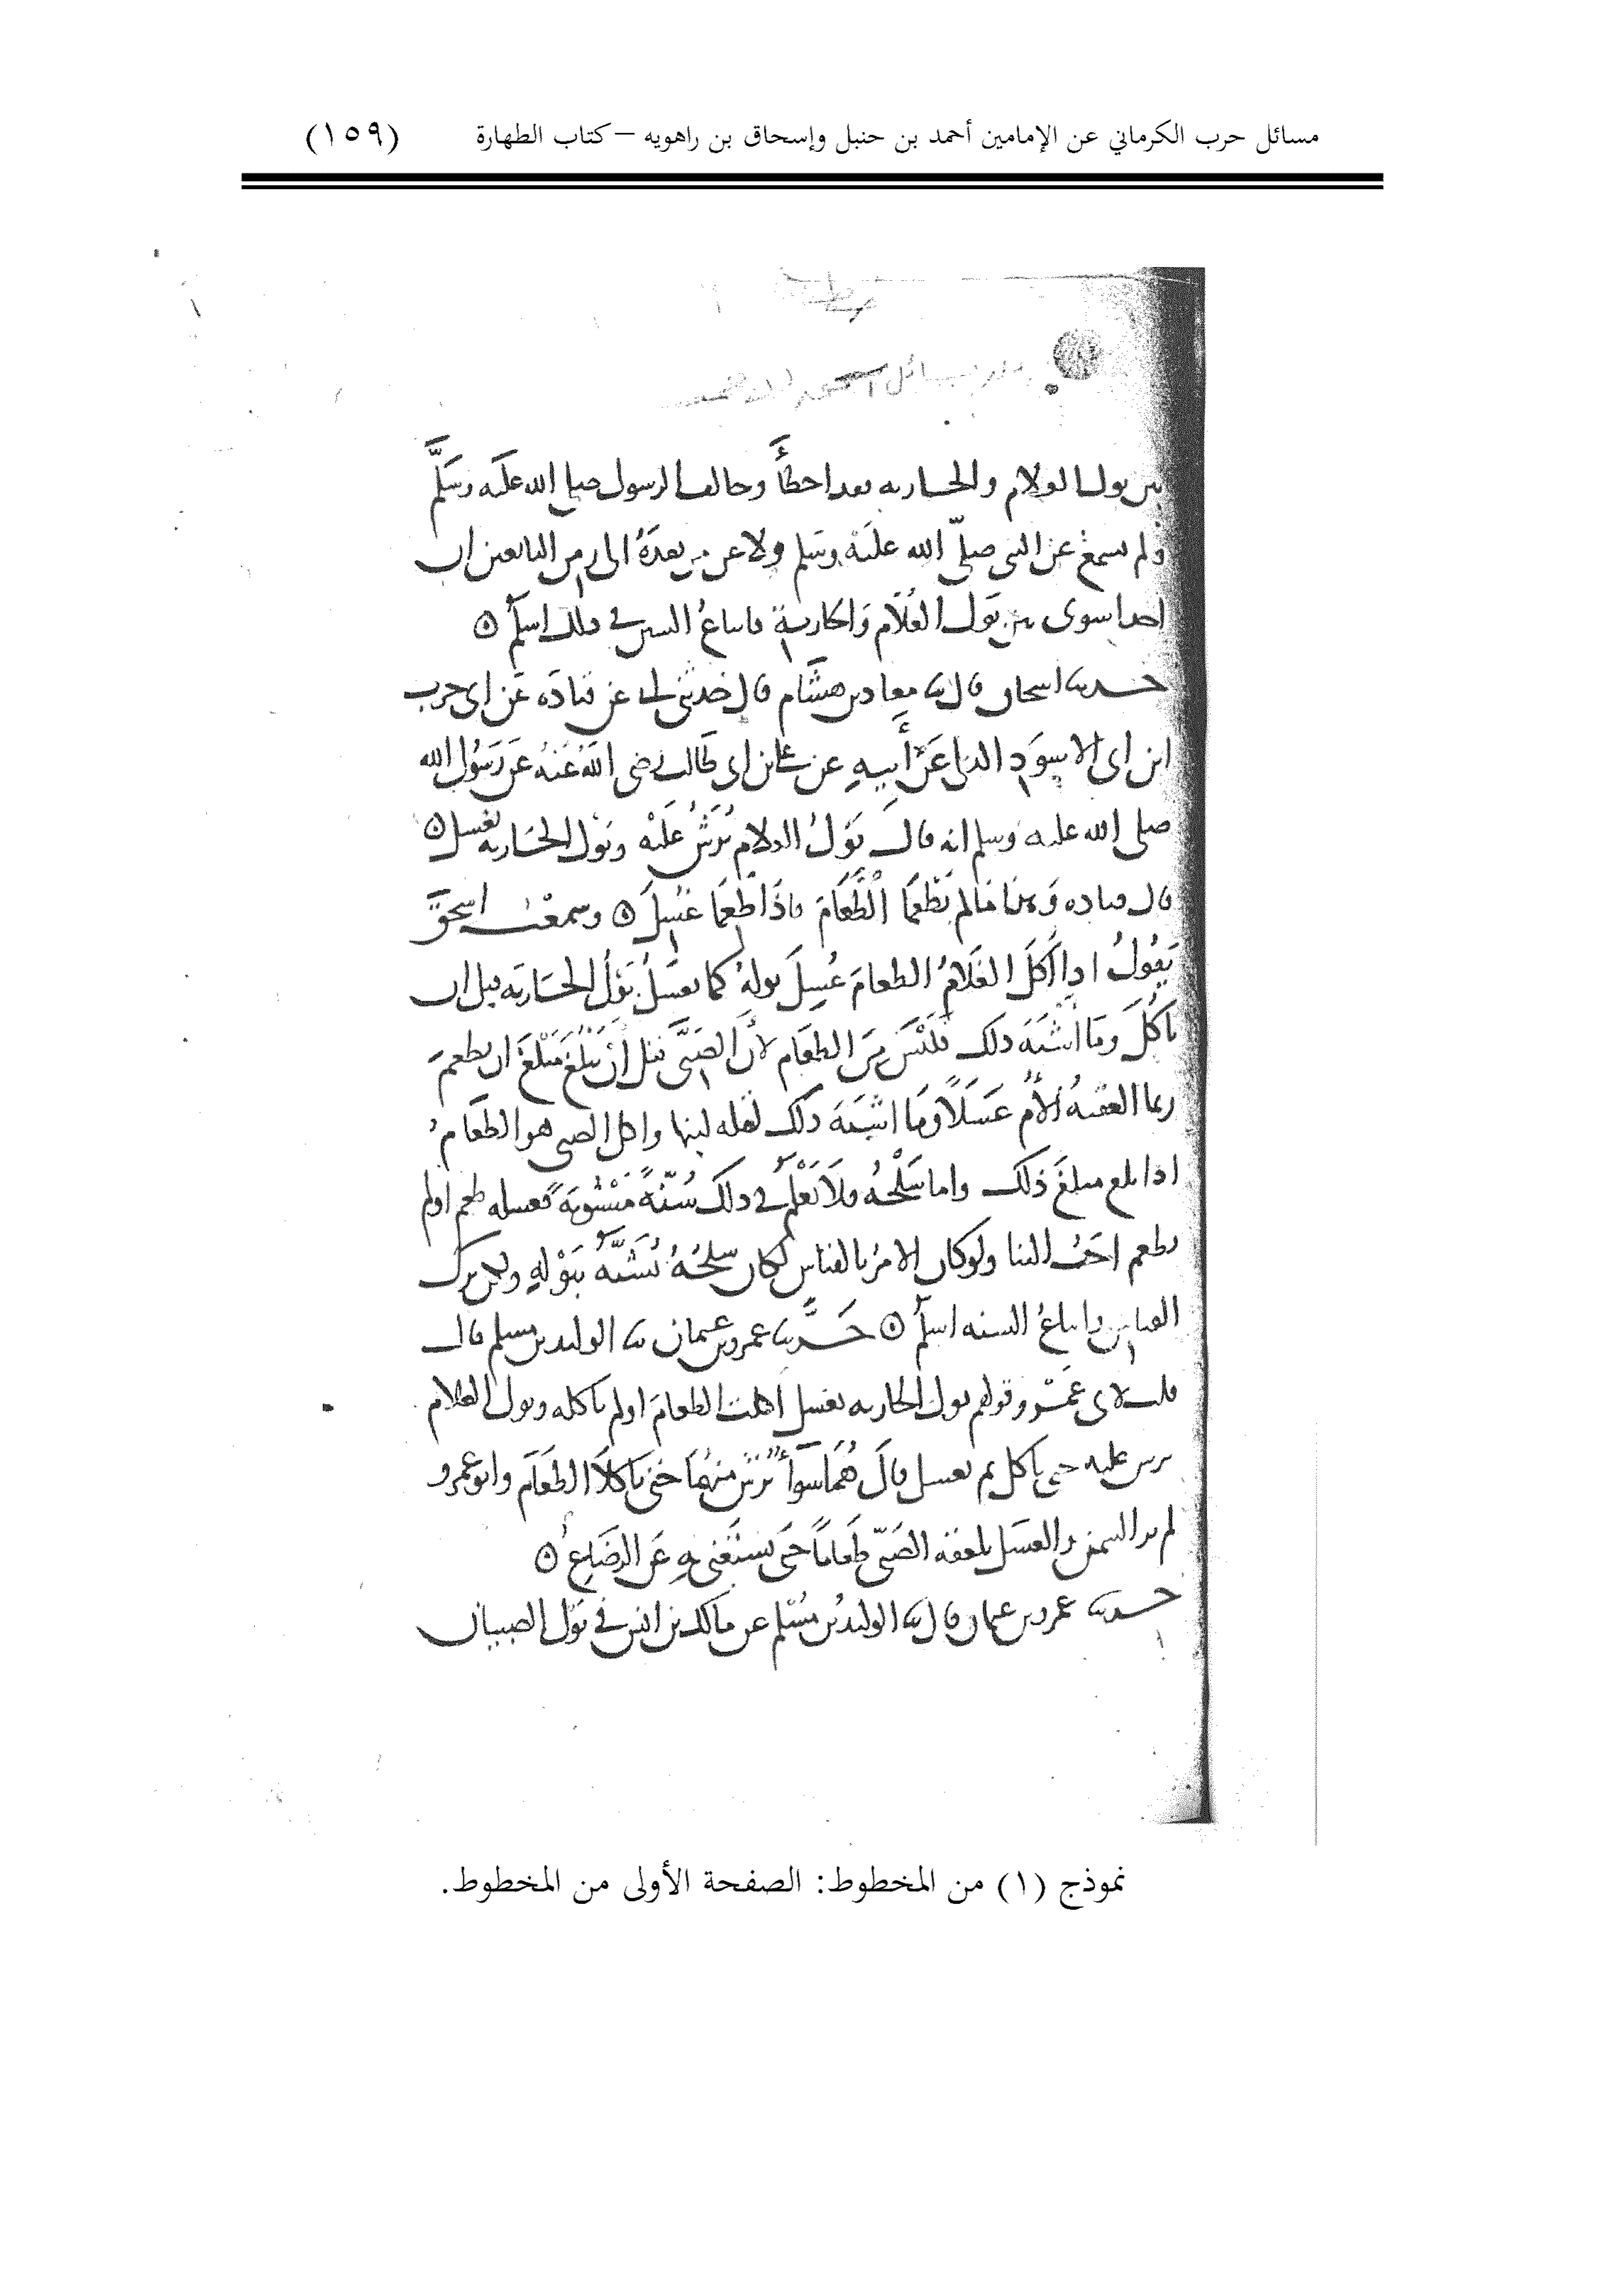 مسائل حرب الكرماني عن الإمامين أحمد بن حنبل وإسحاق بن راهويه – كتاب الطهارة (١٥٩)
بين بول الغلام والجارية فقد اخطأ وخالف الرسول صلى الله عليه وسلم
ولم يسمع عن النبي صلى الله عليه وسلم ولا عن من بعده الى زمن التابعين ان
احدا سوى بين بول الغلام والجارية فاتباع السنن في ذلك اسلم ه
حدثنا اسحاق قال ثنا معاذ بن هشام قال حدثني ابي عن قتادة عن ابي حرب
ابن ابي الاسود الدئلي عن أبيه عن علي بن ابي طالب رضي الله عنه عن رسول الله
صلى الله عليه وسلم انه قال بول الغلام يرش عليه وبول الجارية يغسل ه
قال قتادة وهذا ما لم يطعما الطعام فاذا طعما غسل ه وسمعت اسحق
يقول اذا أكل الغلام الطعام غسل بوله كما يغسل بول الجارية قبل ان
تاكل وما أشبه ذلك فليس من الطعام لأن الصبي قبل أن يبلغ مبلغ ان يطعم
ربما العقته الأم عسلا وما اشبه ذلك لقلة لبنها واكل الصبي هو الطعام
اذا بلغ مبلغ ذلك واما سلحه فلا نعلم في ذلك سنة مسنونة فغسله طعم او لم
يطعم احب الينا ولو كان الامر بالقياس لكان سلحه يشبه ببوله ولكن ترك
القياس واتباع السنه اسلم ه حدثنا عمرو بن عثمان ثنا الوليد بن مسلم قال
قلت لابي عمرو قولهم بول الجارية يغسل أكلت الطعام او لم تاكله وبول الغلام
يرش عليه حتى ياكل ثم يغسل قال هما سواء يرش منهما حتى ياكلا الطعام وابو عمرو
لم ير السمن والعسل يلعقه الصبي طعاما حتى يستغني به عن الرضاع ه
حدثنا عمرو بن عثمان قال ثنا الوليد بن مسلم عن مالك بن انس في بول الصبيان
نموذج (١) من المخطوط: الصفحة الأولى من المخطوط.